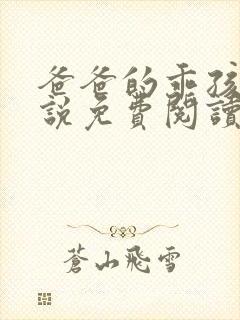 爸爸的乖孩
說免費閱讀
蒼山飛雪